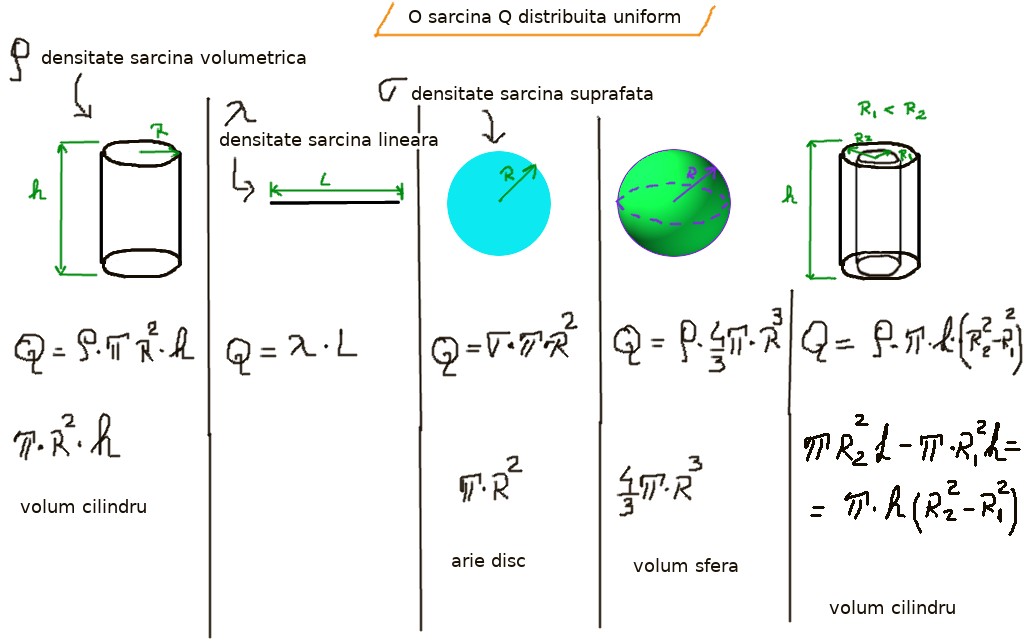 O sarcina Q distribuita uniform
ρ densitate sarcina volumetrica
R
h
Q = ρ·π R²·h
π·R²·h
volum cilindru
λ
densitate sarcina lineara
L
Q = λ·L
σ densitate sarcina suprafata
R
Q = σ·π·R²
π·R²
arie disc
R
Q = ρ·4/3 π·R³
4/3 π·R³
volum sfera
R₁ < R₂
R₂
R₁
h
Q = ρ·π·h·(R₂²-R₁²)
πR₂²h - π·R₁²h =
= π·h(R₂²-R₁²)
volum cilindru